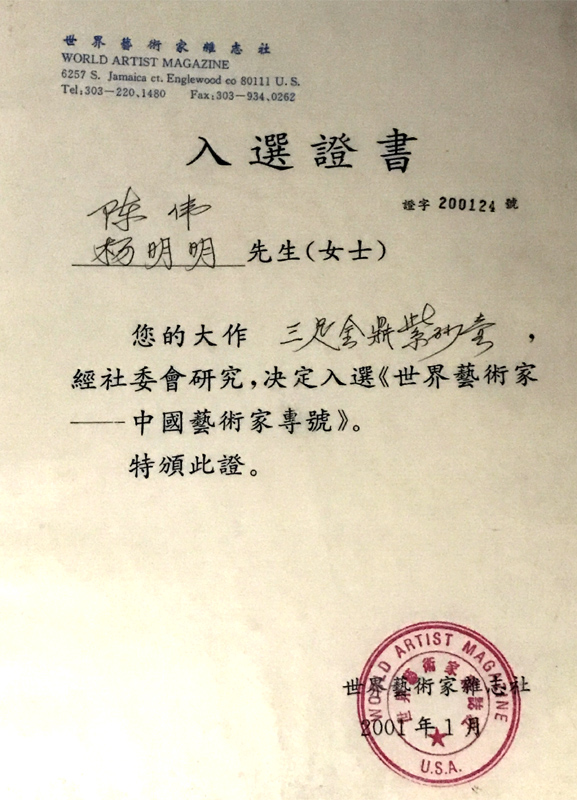 世界藝術家雜志社
WORLD ARTIST MAGAZINE
6257 S. Jamaica ct. Englewood co 80111 U. S.
Tel:303—220、1480 Fax:303—934、0262
入選證書
證字 200124 號
陈伟
杨明明 先生(女士)
您的大作 三足金鼎紫砂壶，
經社委會研究，决定入選《世界藝術家
——中國藝術家專號》。
特頒此證。
世界藝術家雜志社
2001 年 1 月
WORLD ARTIST MAGAZINE
世界藝術家雜誌社
U.S.A.